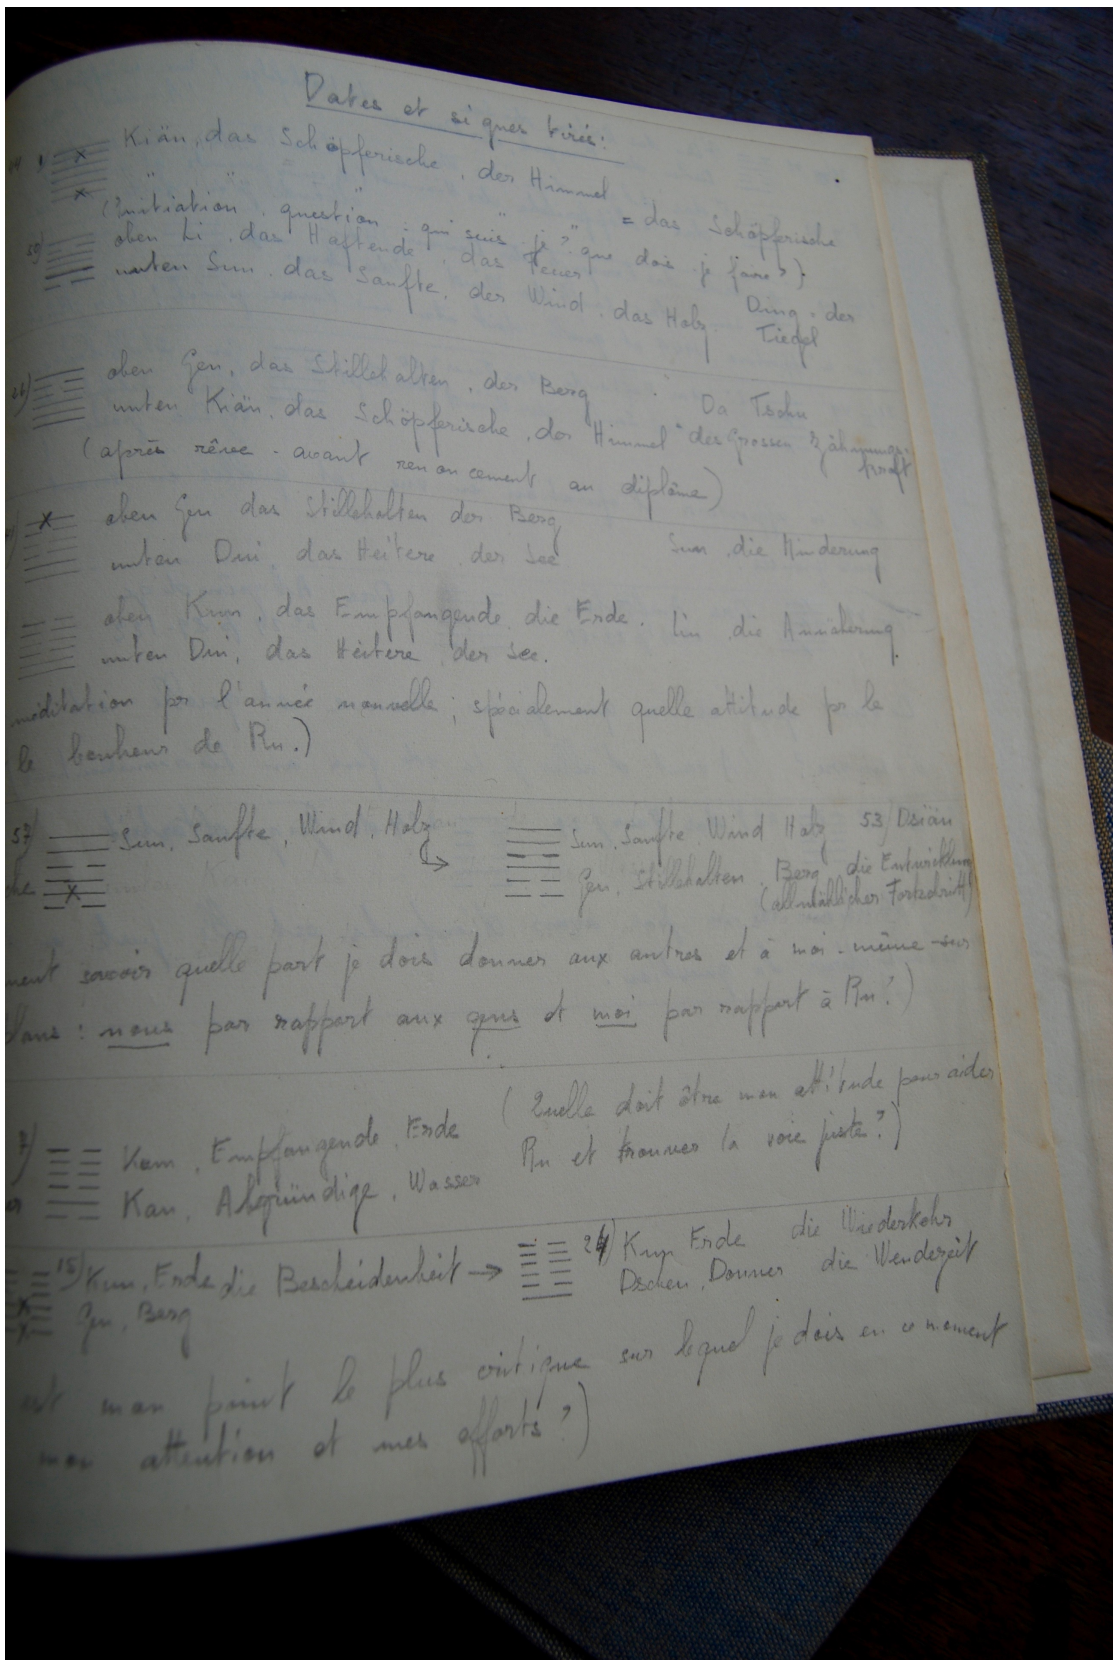 Dates et signes tirés:
Kiän, das Schöpferische, der Himmel
= das Schöpferische
(Initiation. question. "qui suis-je?" "que dois-je faire?).
50) oben Li. das Haftende, das Feuer
unten Sun. das Sanfte. der Wind. das Holz. Ding. der
Tiegel
26) oben Gen, das Stillehalten, der Berg Da Tschu
unten Kiän. das Schöpferische, der Himmel des Grossen Zähmungs-
kraft
(après rêve - avant renoncement au diplôme)
oben Gen das Stillehalten der Berg
unten Dui, das Heitere, der See Sun, die Minderung
oben Kun, das Empfangende, die Erde. Lin, die Annäherung
unten Dui, das Heitere, der See.
méditation pr l'année nouvelle; spécialement quelle attitude pr le
le bonheur de Ru.)
57) Sun, Sanfte, Wind, Holz Sun, Sanfte Wind Holz 53) Dsiän
Gen, Stillehalten, Berg die Entwicklung
(allmählicher Fortschritt)
ment savoir quelle part je dois donner aux autres et à moi-même - sur
plans: nous par rapport aux gens et moi par rapport à Ru?)
7) Kun, Empfangende, Erde (Quelle doit être mon attitude pour aider
Kan, Abgründige, Wasser Ru et trouver la voie juste?)
15) Kun, Erde die Bescheidenheit → 24) Kun Erde die Wiederkehr
Gen, Berg Dschen, Donner die Wendezeit
est mon point le plus critique sur lequel je dois en ce moment
mon attention et mes efforts?)